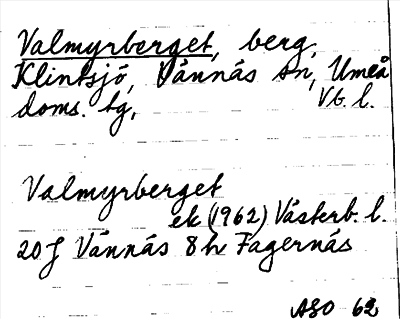 Valmyrberget, berg,
Klintsjö, Vännäs sn, Umeå
doms. tg, Vb. l.
Valmyrberget
ek (1962) Västerb. l.
20 J Vännäs 8 h Fagernäs
ASO 62